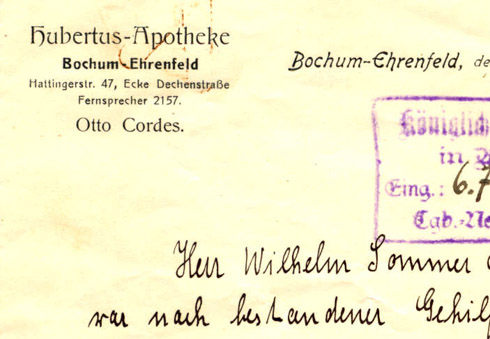 Hubertus-Apotheke
Bochum-Ehrenfeld
Hattingerstr. 47, Ecke Dechenstraße
Fernsprecher 2157.
Otto Cordes.
Bochum-Ehrenfeld, de
Königlich
in
Eing.: 6.7
Tgb.-Ne
Herr Wilhelm Sommer
war nach bestandener Gehilf